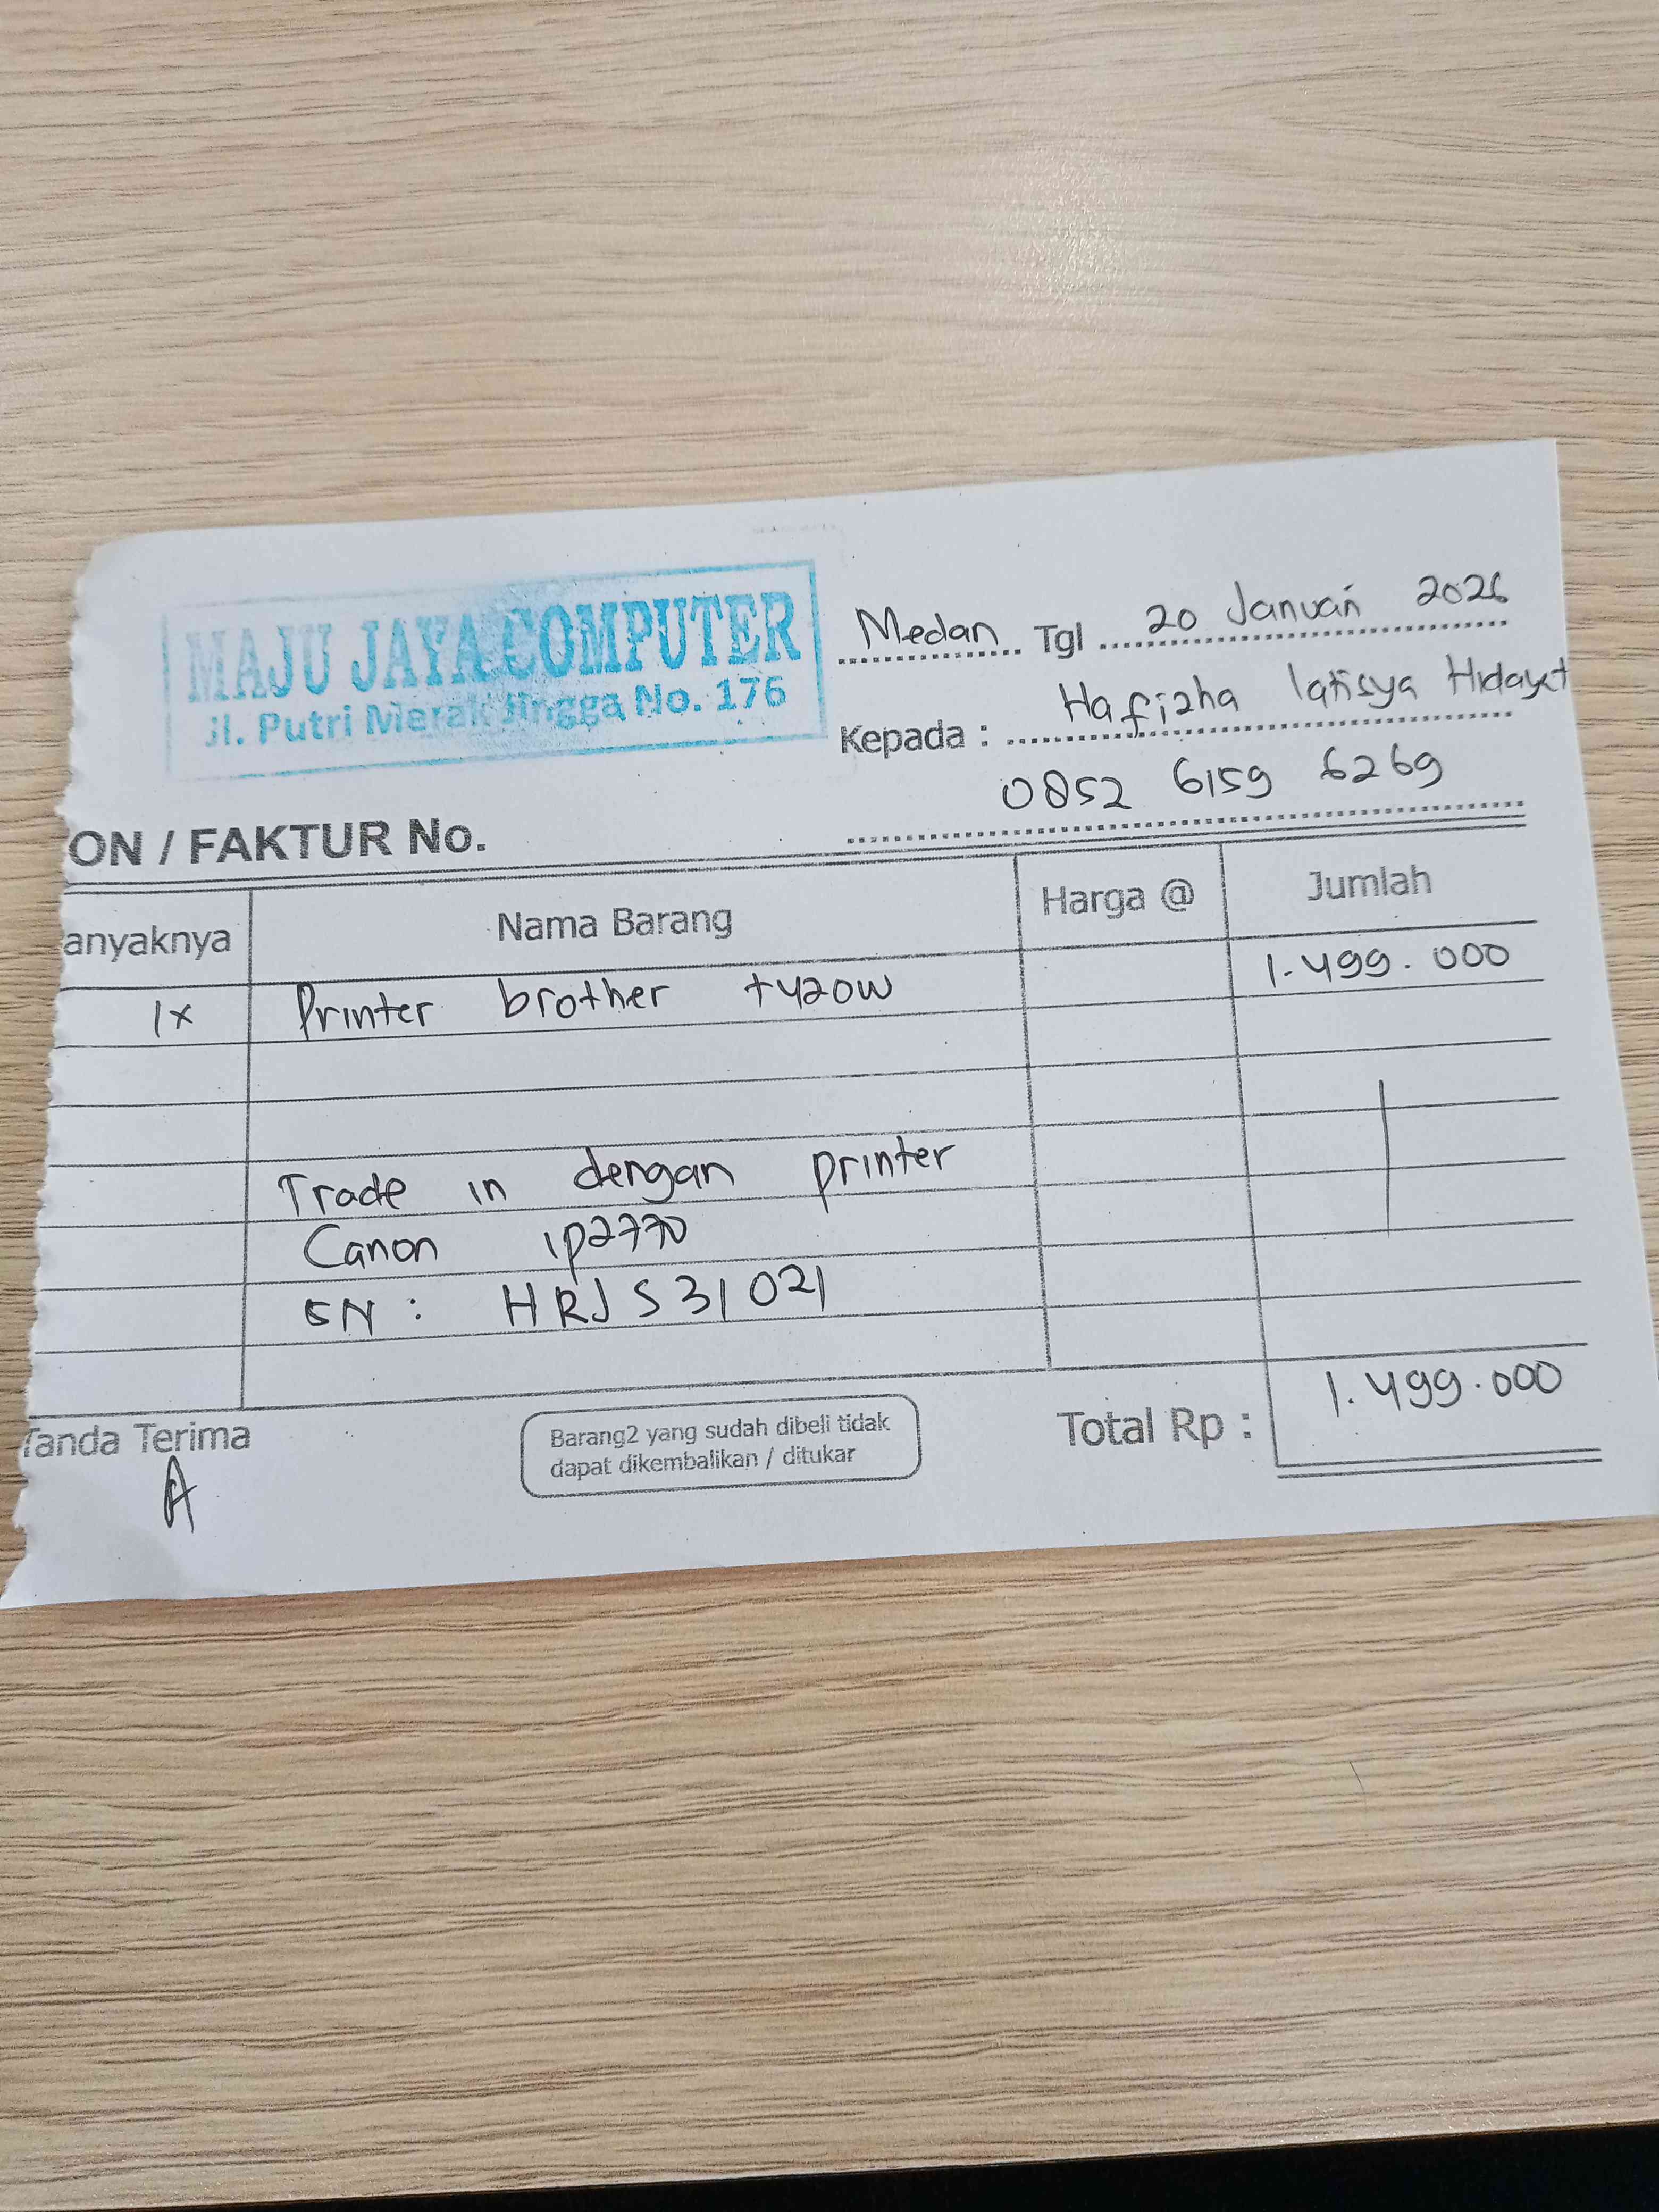 MAJU JAYA COMPUTER
Jl. Putri Merak Jingga No. 176
Medan Tgl 20 Januari 2026
Kepada : Hafizha latisya Hidayat
0852 6159 6269
ON / FAKTUR No.
anyaknya Nama Barang Harga @ Jumlah
1x Printer brother t420w 1.499.000
Trade in dengan printer
Canon ip2770
SN : HRJS31021
Tanda Terima
Barang2 yang sudah dibeli tidak
dapat dikembalikan / ditukar
Total Rp : 1.499.000